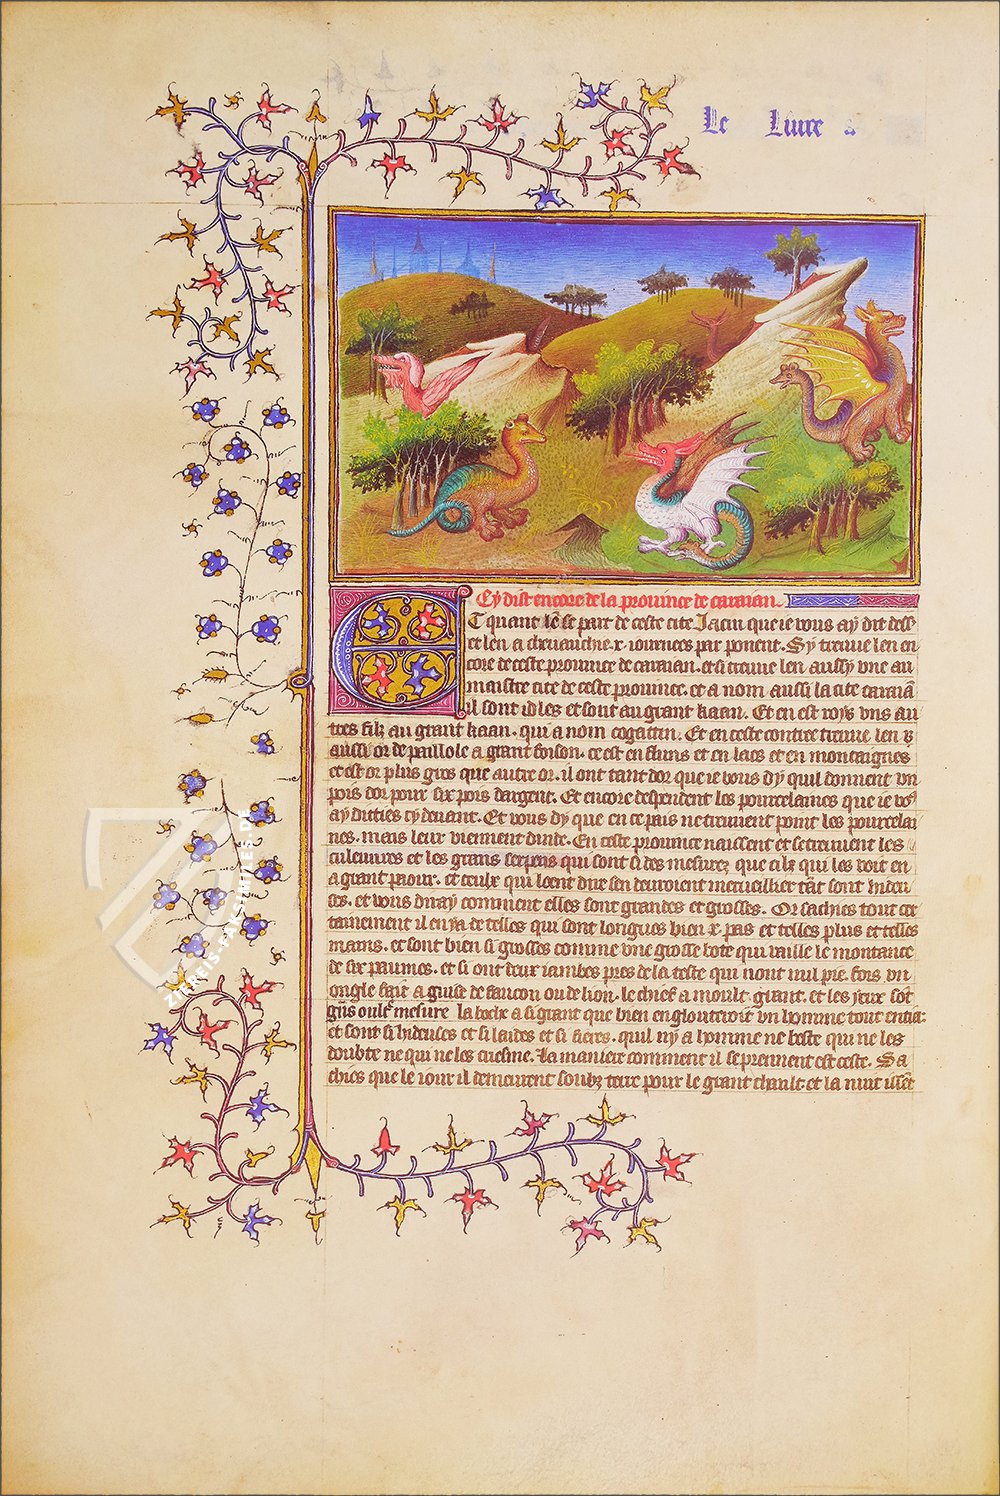 Le Liure
Cy dist encore de la prouince de caraian.
Et quant lē se part de ceste cite Jacin que ie vous ay dit dess̄
et len a cheuauchie .x. iournees par ponent. Sy treuue len en
core de ceste prouince de caraian. et si treuue len aussy vne au
maistre cite de ceste prouince. et a nom aussi la cite caraiā
il sont ydles et sont au grant kaan. Et en est roys vns au
tres filz au grant kaan. qui a nom cogatin. Et en ceste contree treuue len
aussi or de paillole a grant foison. ce est en fluns et en lacs et en montaignes
et est or plus gros que autre or. il ont tant dor que ie vous dy quil donnent vn
pois dor pour six pois dargent. Et encore despendent les pourcelaines que ie voꝰ
ay dittes cy deuant. Et vous dy que en ce pais ne treuuent point les pourcelai
nes. mais leur viennent dinde. En ceste prouince naissent et se treuuent les
culeuures et les grans serpens qui sont si desmesurez que cilz qui les voit en
a grant paour. et ceulx qui loent dire sen deuroient merueillier tāt sont hideu
ses. et vous diray comment elles sont grandes et grosses. Or sachies tout cer
tainement il en ya de telles qui sont longues bien .x. pas et telles plus et telles
mains. et sont bien si grosses comme vne grosse bote qui baille le montance
de six paumes. et si ont deux iambes pres de la teste qui nont nul pie. fors vn
ongle fait a guise de faucon ou de lion. le chief a moult grant. et les yeux sōt
 mesure la boche a si grant que bien engloutiroit vn homme tout entier
et sont si hideuses et si laides et si fieres. quil ny a homme ne beste qui ne les
doubte ne qui ne les criesme. La maniere comment il se prennent est ceste. Sa
chies que le iour il demeurent soubz terre pour le grant chault. et la nuit issēt
ZIEREIS-FAKSIMILES.DE